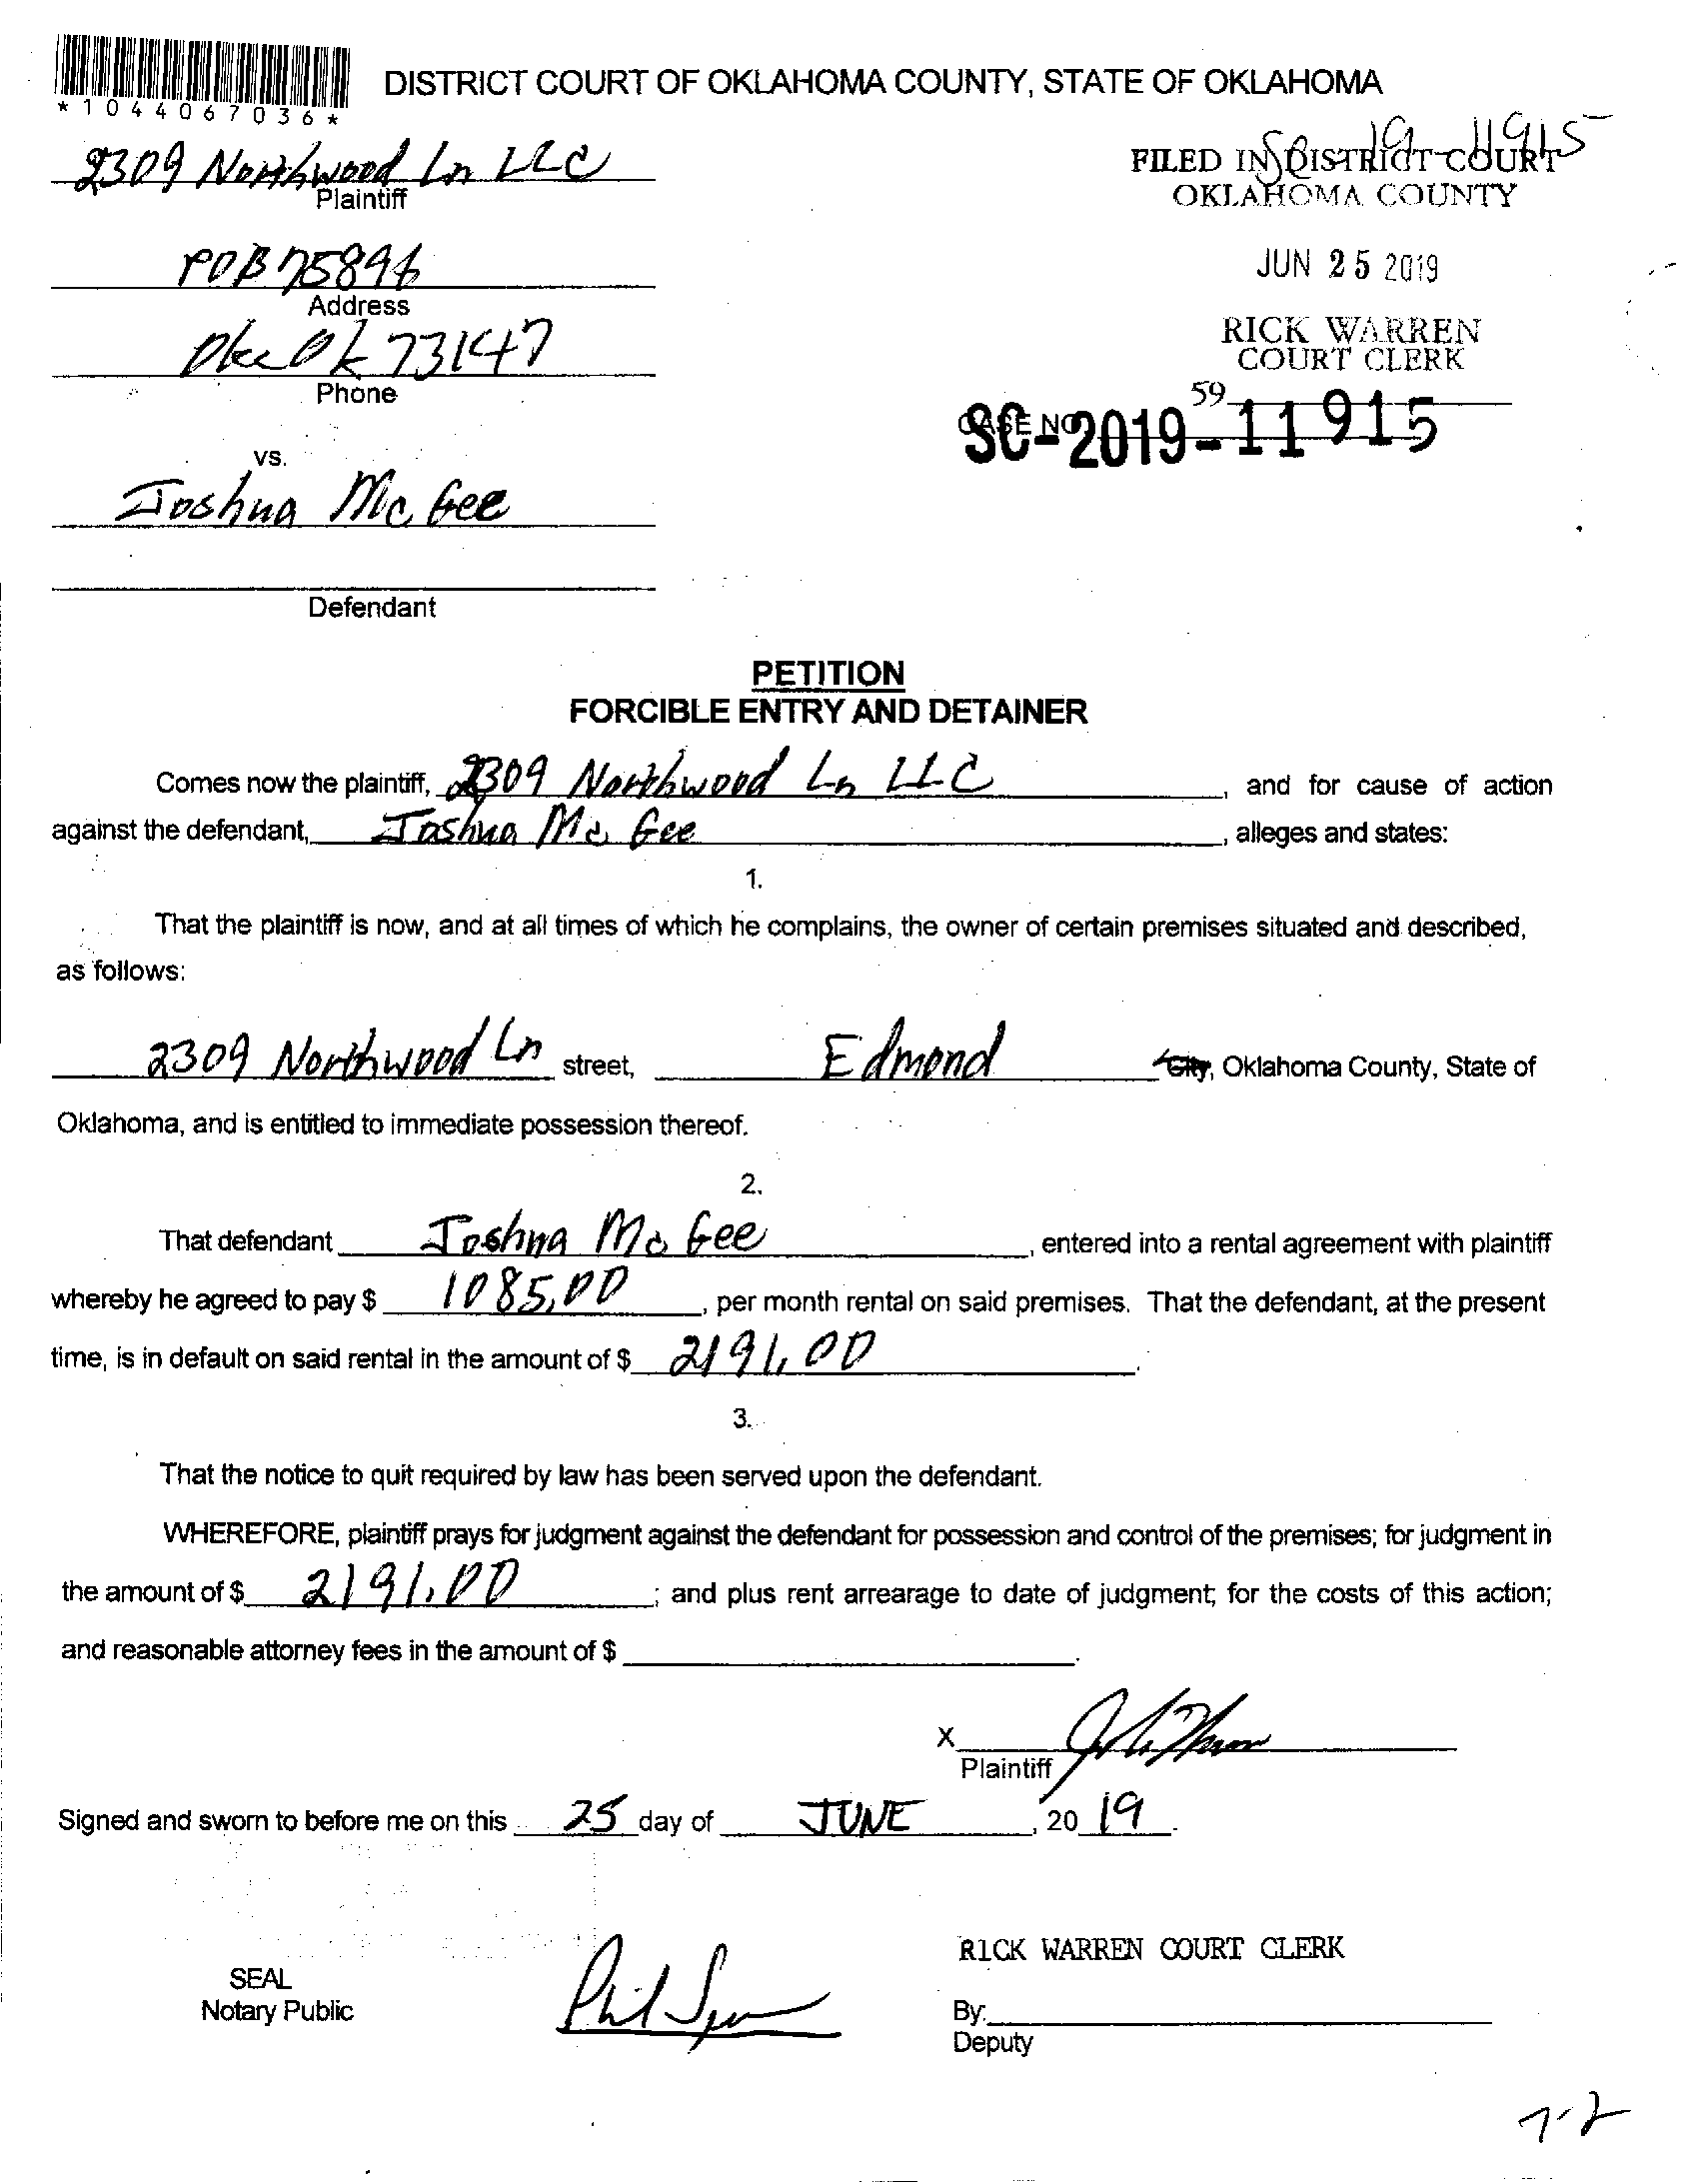 *1044067036*
DISTRICT COURT OF OKLAHOMA COUNTY, STATE OF OKLAHOMA
2309 Northwood Ln LLC
Plaintiff
SC 19-11915
FILED IN DISTRICT COURT
OKLAHOMA COUNTY
POB 75896
Address
JUN 25 2019
Okc Ok 73147
Phone
RICK WARREN
COURT CLERK
59
CASE NO
SC-2019-11915
vs.
Joshua McGee
Defendant
PETITION
FORCIBLE ENTRY AND DETAINER
Comes now the plaintiff, 2309 Northwood Ln LLC, and for cause of action
against the defendant, Joshua McGee, alleges and states:
1.
That the plaintiff is now, and at all times of which he complains, the owner of certain premises situated and described,
as follows:
2309 Northwood Ln street, Edmond City, Oklahoma County, State of
Oklahoma, and is entitled to immediate possession thereof.
2.
That defendant Joshua McGee, entered into a rental agreement with plaintiff
whereby he agreed to pay $ 1085.00, per month rental on said premises. That the defendant, at the present
time, is in default on said rental in the amount of $ 2191.00.
3.
That the notice to quit required by law has been served upon the defendant.
WHEREFORE, plaintiff prays for judgment against the defendant for possession and control of the premises; for judgment in
the amount of $ 2191.00; and plus rent arrearage to date of judgment; for the costs of this action;
and reasonable attorney fees in the amount of $ .
X
Plaintiff
Signed and sworn to before me on this 25 day of JUNE, 20 19.
RICK WARREN COURT CLERK
SEAL
Notary Public
Phil
By:
Deputy
7-2